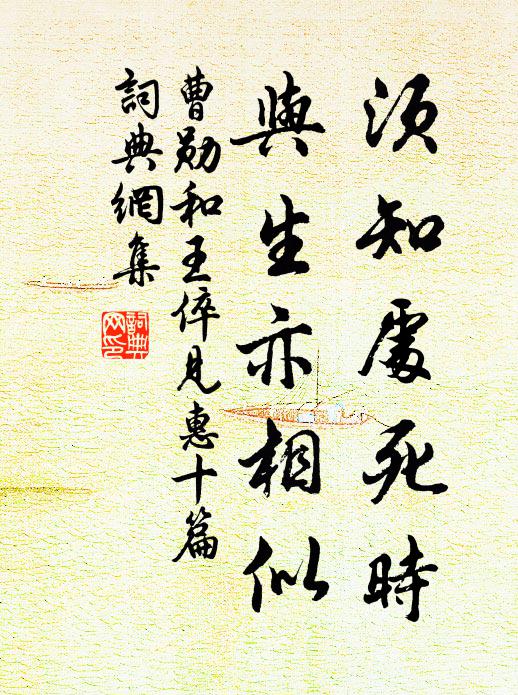 須知處死時
與生亦相似
曹勛和王倅見惠十篇
詞典網集
詞典網印